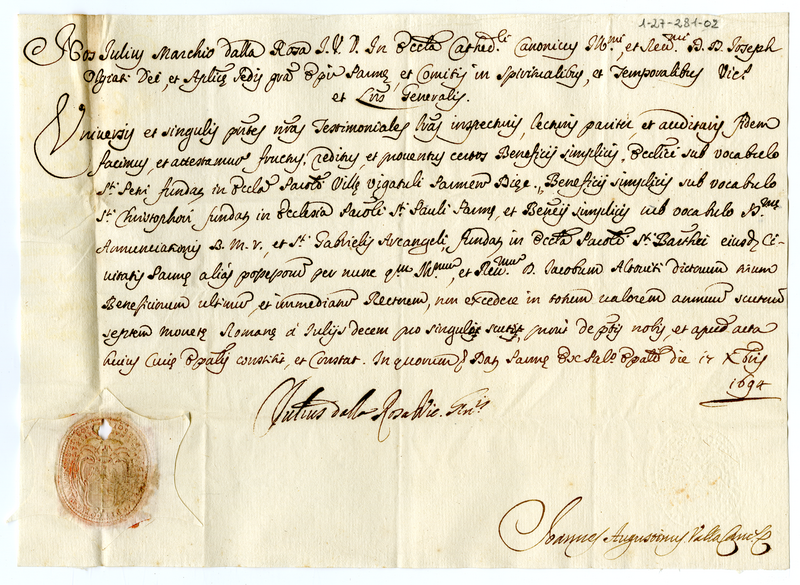 1-27-281-02
Nos Iulius Marchio dalla Rosa I. V. D. In Eccła Cathed.li Canonicus Ill.mi, et Reu.mi D. D. Joseph
Dei, et Aplicę Sedis grã Epi Parmę, et Comitis in Spiritualibus, et Temporalibus Vic.s
et Geñalis.
Vniuersis et singulis pñtes nras Testimoniales lras inspecturis, lecturis pariter, et audituris fidem
facimus, et attestamur fructus, redditus et prouentus certos Beneficij simplicis, Ecclici sub vocabulo
S.ti Petri fundat in Eccła Villę Vigatuli Parmen Beneficij simplicis sub vocabulo
S.ti Christophori fundat in Ecclesia S.ti Pauli Parmę, et Beneij simplicis sub vocabulo SS.mę
Annunciationis B. M. V., et S.ti Gabrielis Arcangeli, fundat in Eccła S.ti ejusd Ci-
uitatis Parmę aliàs per nunc Ill.mum, et Reu.mum D. Iacobum Altouiti dictorum trium
Beneficiorum ultimum, et immediatum Rectorem, non excedere in totum ualorem annuum scutorum
septem monetę Romanę à Iulijs decem pro singulo scuto, prout de nobis, et apud acta
huius Curię Epalis constitit, et Constat. In quorum Dat Parmę Ex Pal.o Epali die 17 Xbris
1694
Julius dalla Rosa Vic. Gñlis
Joannes Augustinus Valla